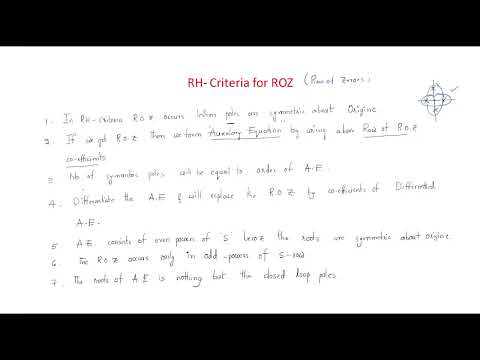 RH- Criteria for ROZ (Row of Zeroes)
1. In RH- criteria R.O.Z occurs when poles are symmetric about Origine
2. If we get R.O.Z then we form Auxilary Equation by using above Row of R.O.Z
co-efficients
3. No of symmetric poles will be equal to order of A.E.
4. Differentiate the A.E & will replace the R.O.Z by co-efficients of Differentiated
A.E.
5. A.E. consists of even powers of 'S' becoz the roots are symmetric about origine.
6. The R.O.Z occurs only in odd - powers of S-row
7. The roots of A.E is nothing but the closed loop poles.